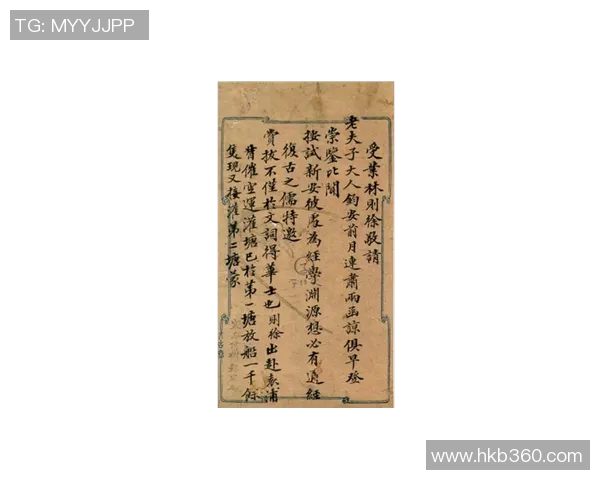 TG: MYYJJPP
受業林則徐敬請
老夫子大人鈞安前月連肅兩函諒俱早登
崇鑒比聞
按試新安彼處為經學淵源想必有通經
復古之儒特邀
賞拔不僅於文詞得華士也則徐出赴袁浦
督催空運灌塘已於第一塘放船一千餘
隻現又接灌第二塘蒙
www.hkb360.com